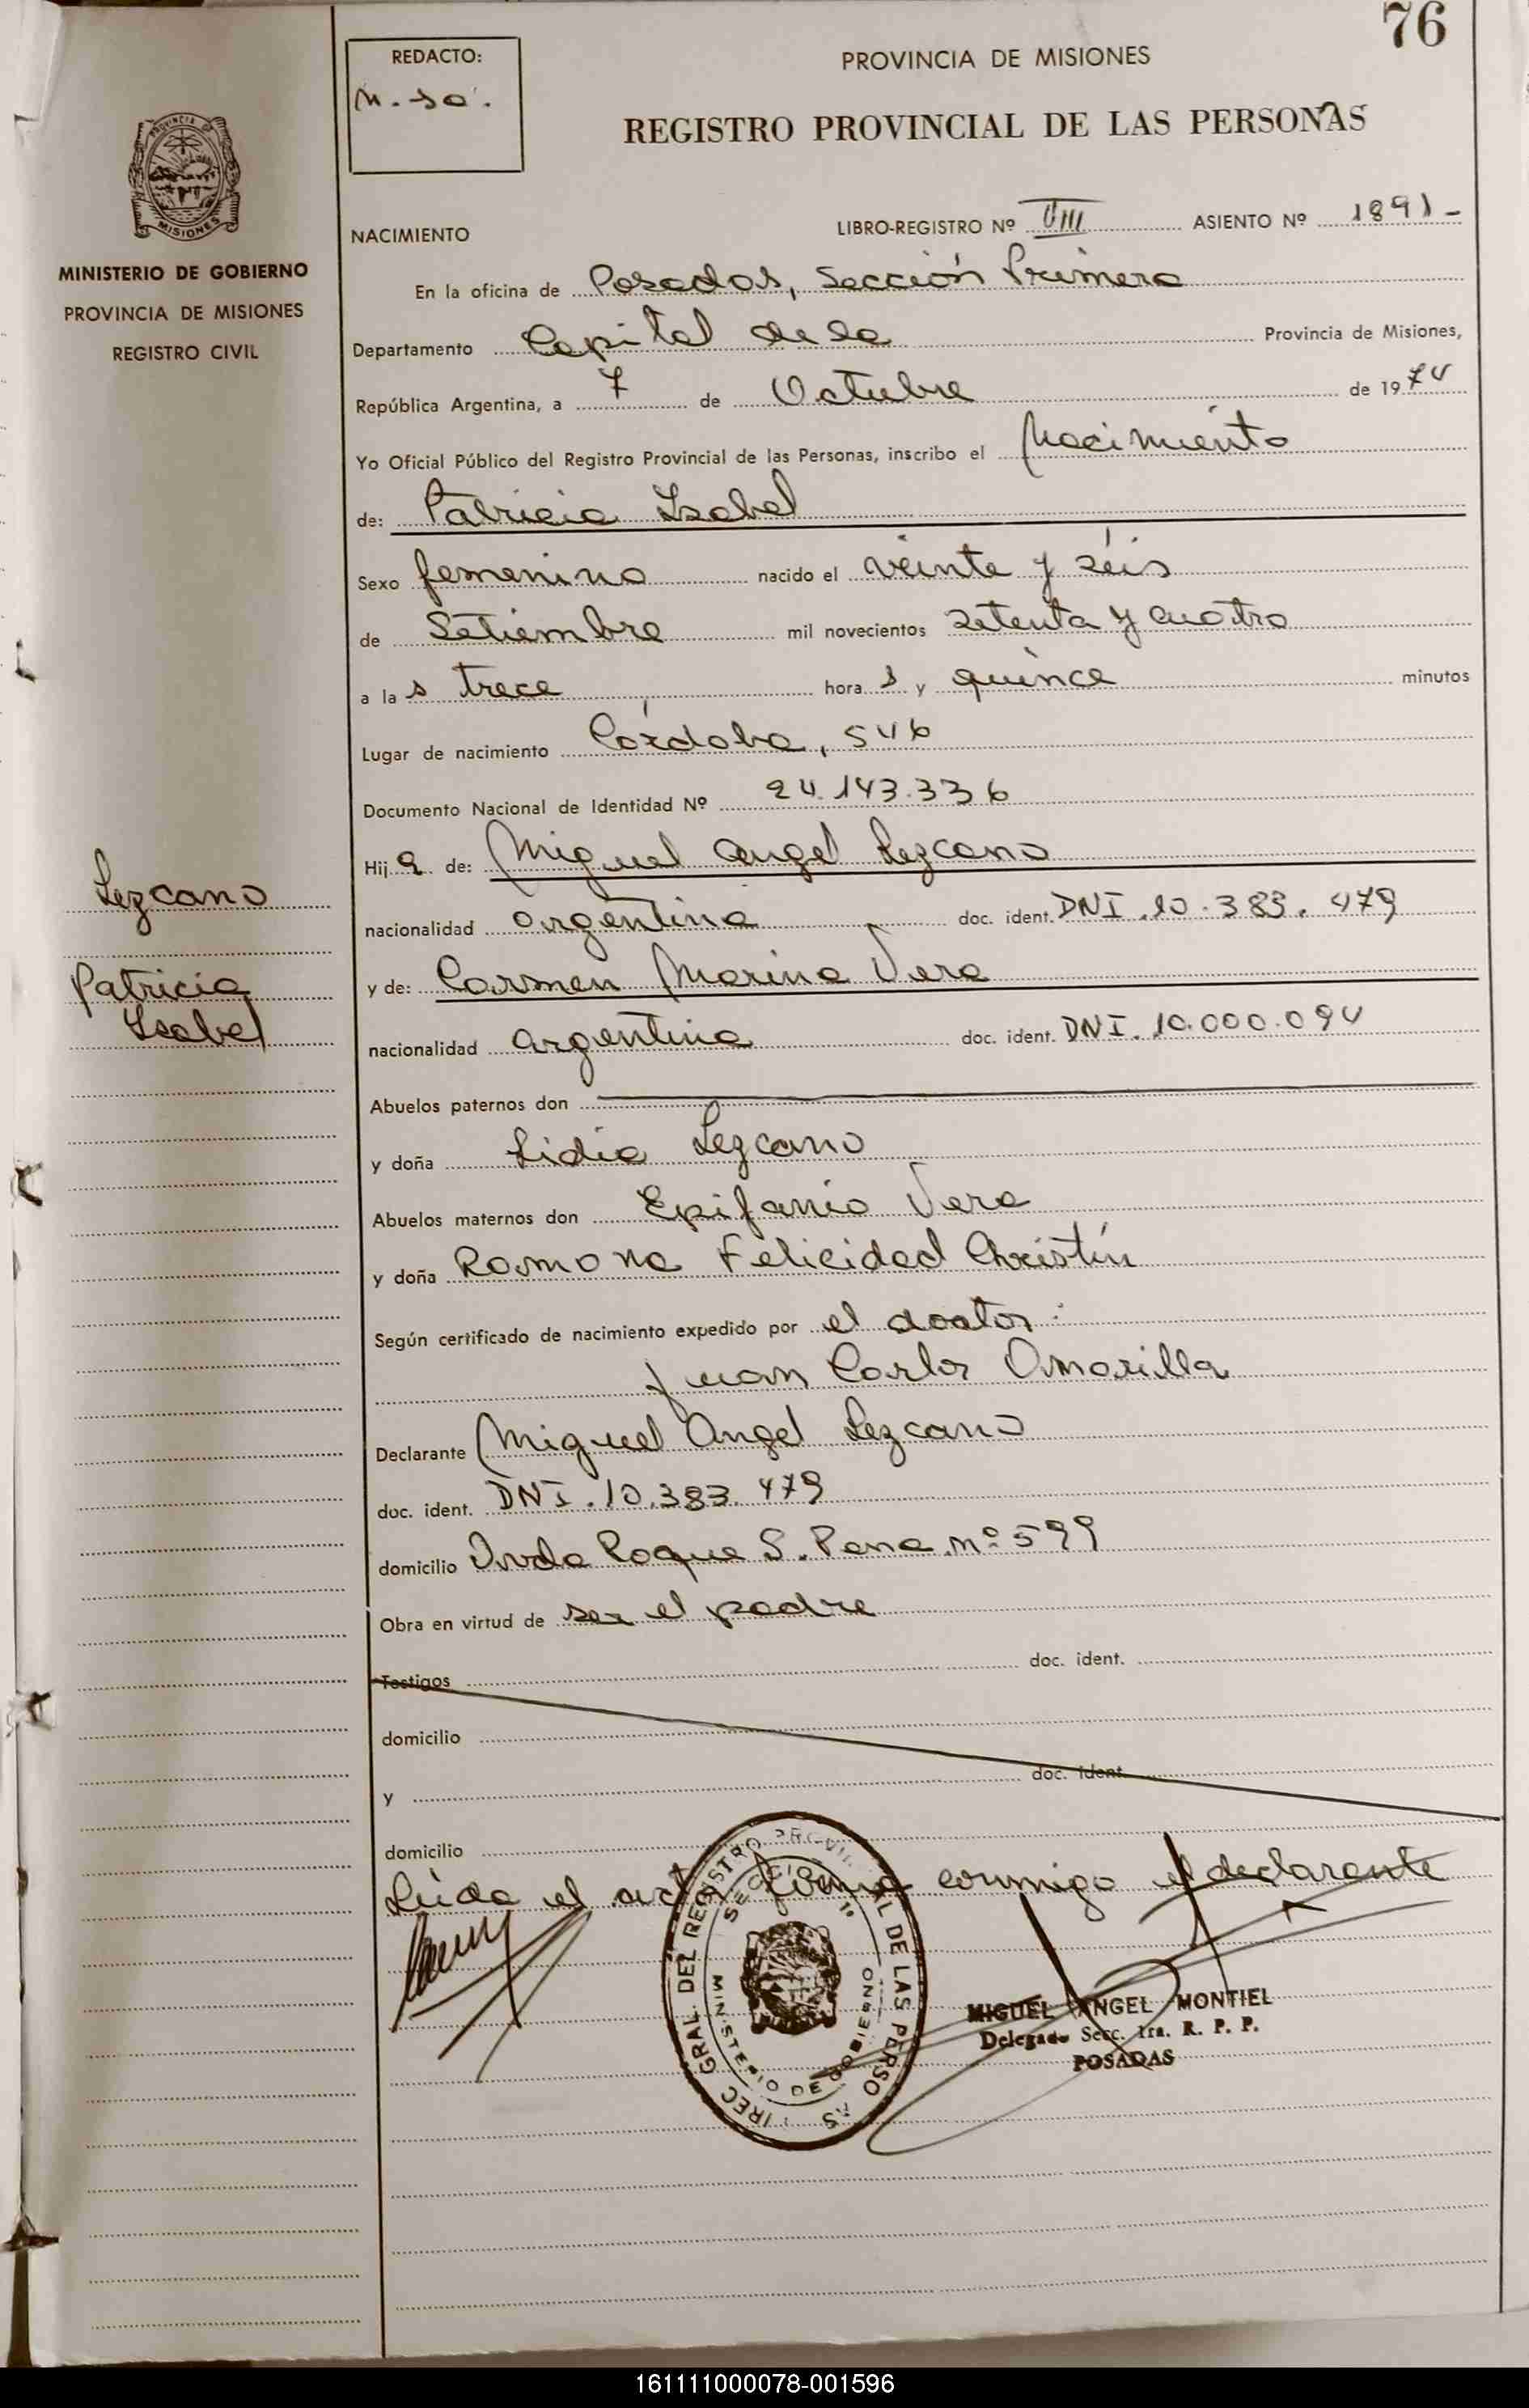 76
REDACTO:
PROVINCIA DE MISIONES
REGISTRO PROVINCIAL DE LAS PERSONAS
MISIONES
MINISTERIO DE GOBIERNO
PROVINCIA DE MISIONES
REGISTRO CIVIL
NACIMIENTO LIBRO-REGISTRO Nº VIII ASIENTO Nº 1891-
En la oficina de Posadas, Sección Primera
Departamento Capital de la Provincia de Misiones,
República Argentina, a 7 de Octubre de 1974
Yo Oficial Público del Registro Provincial de las Personas, inscribo el Nacimiento
de: Patricia Isabel
Sexo femenino nacido el veinte y séis
de Setiembre mil novecientos setenta y cuatro
a la s trece hora s y quince minutos
Lugar de nacimiento Córdoba, 546
Documento Nacional de Identidad Nº 24.143.336
Hij a de: Miguel Angel Lezcano
Lezcano
nacionalidad argentina doc. ident. DNI.10.383.479
Patricia
Isabel
y de: Carmen Marina Vera
nacionalidad argentina doc. ident. DNI.10.000.094
Abuelos paternos don
y doña Lidia Lezcano
Abuelos maternos don Epifanio Vera
y doña Ramona Felicidad Christín
Según certificado de nacimiento expedido por el doctor:
Juan Carlos Amarilla
Declarante Miguel Angel Lezcano
doc. ident. DNI.10.383.479
domicilio Avda Roque S. Pena nº 599
Obra en virtud de ser el padre
Testigos doc. ident.
domicilio
y doc. ident.
domicilio
Leída el acta firma conmigo el declarante
MIGUEL ANGEL MONTIEL
Delegado Secc. 1ra. R. P. P.
POSADAS
161111000078-001596